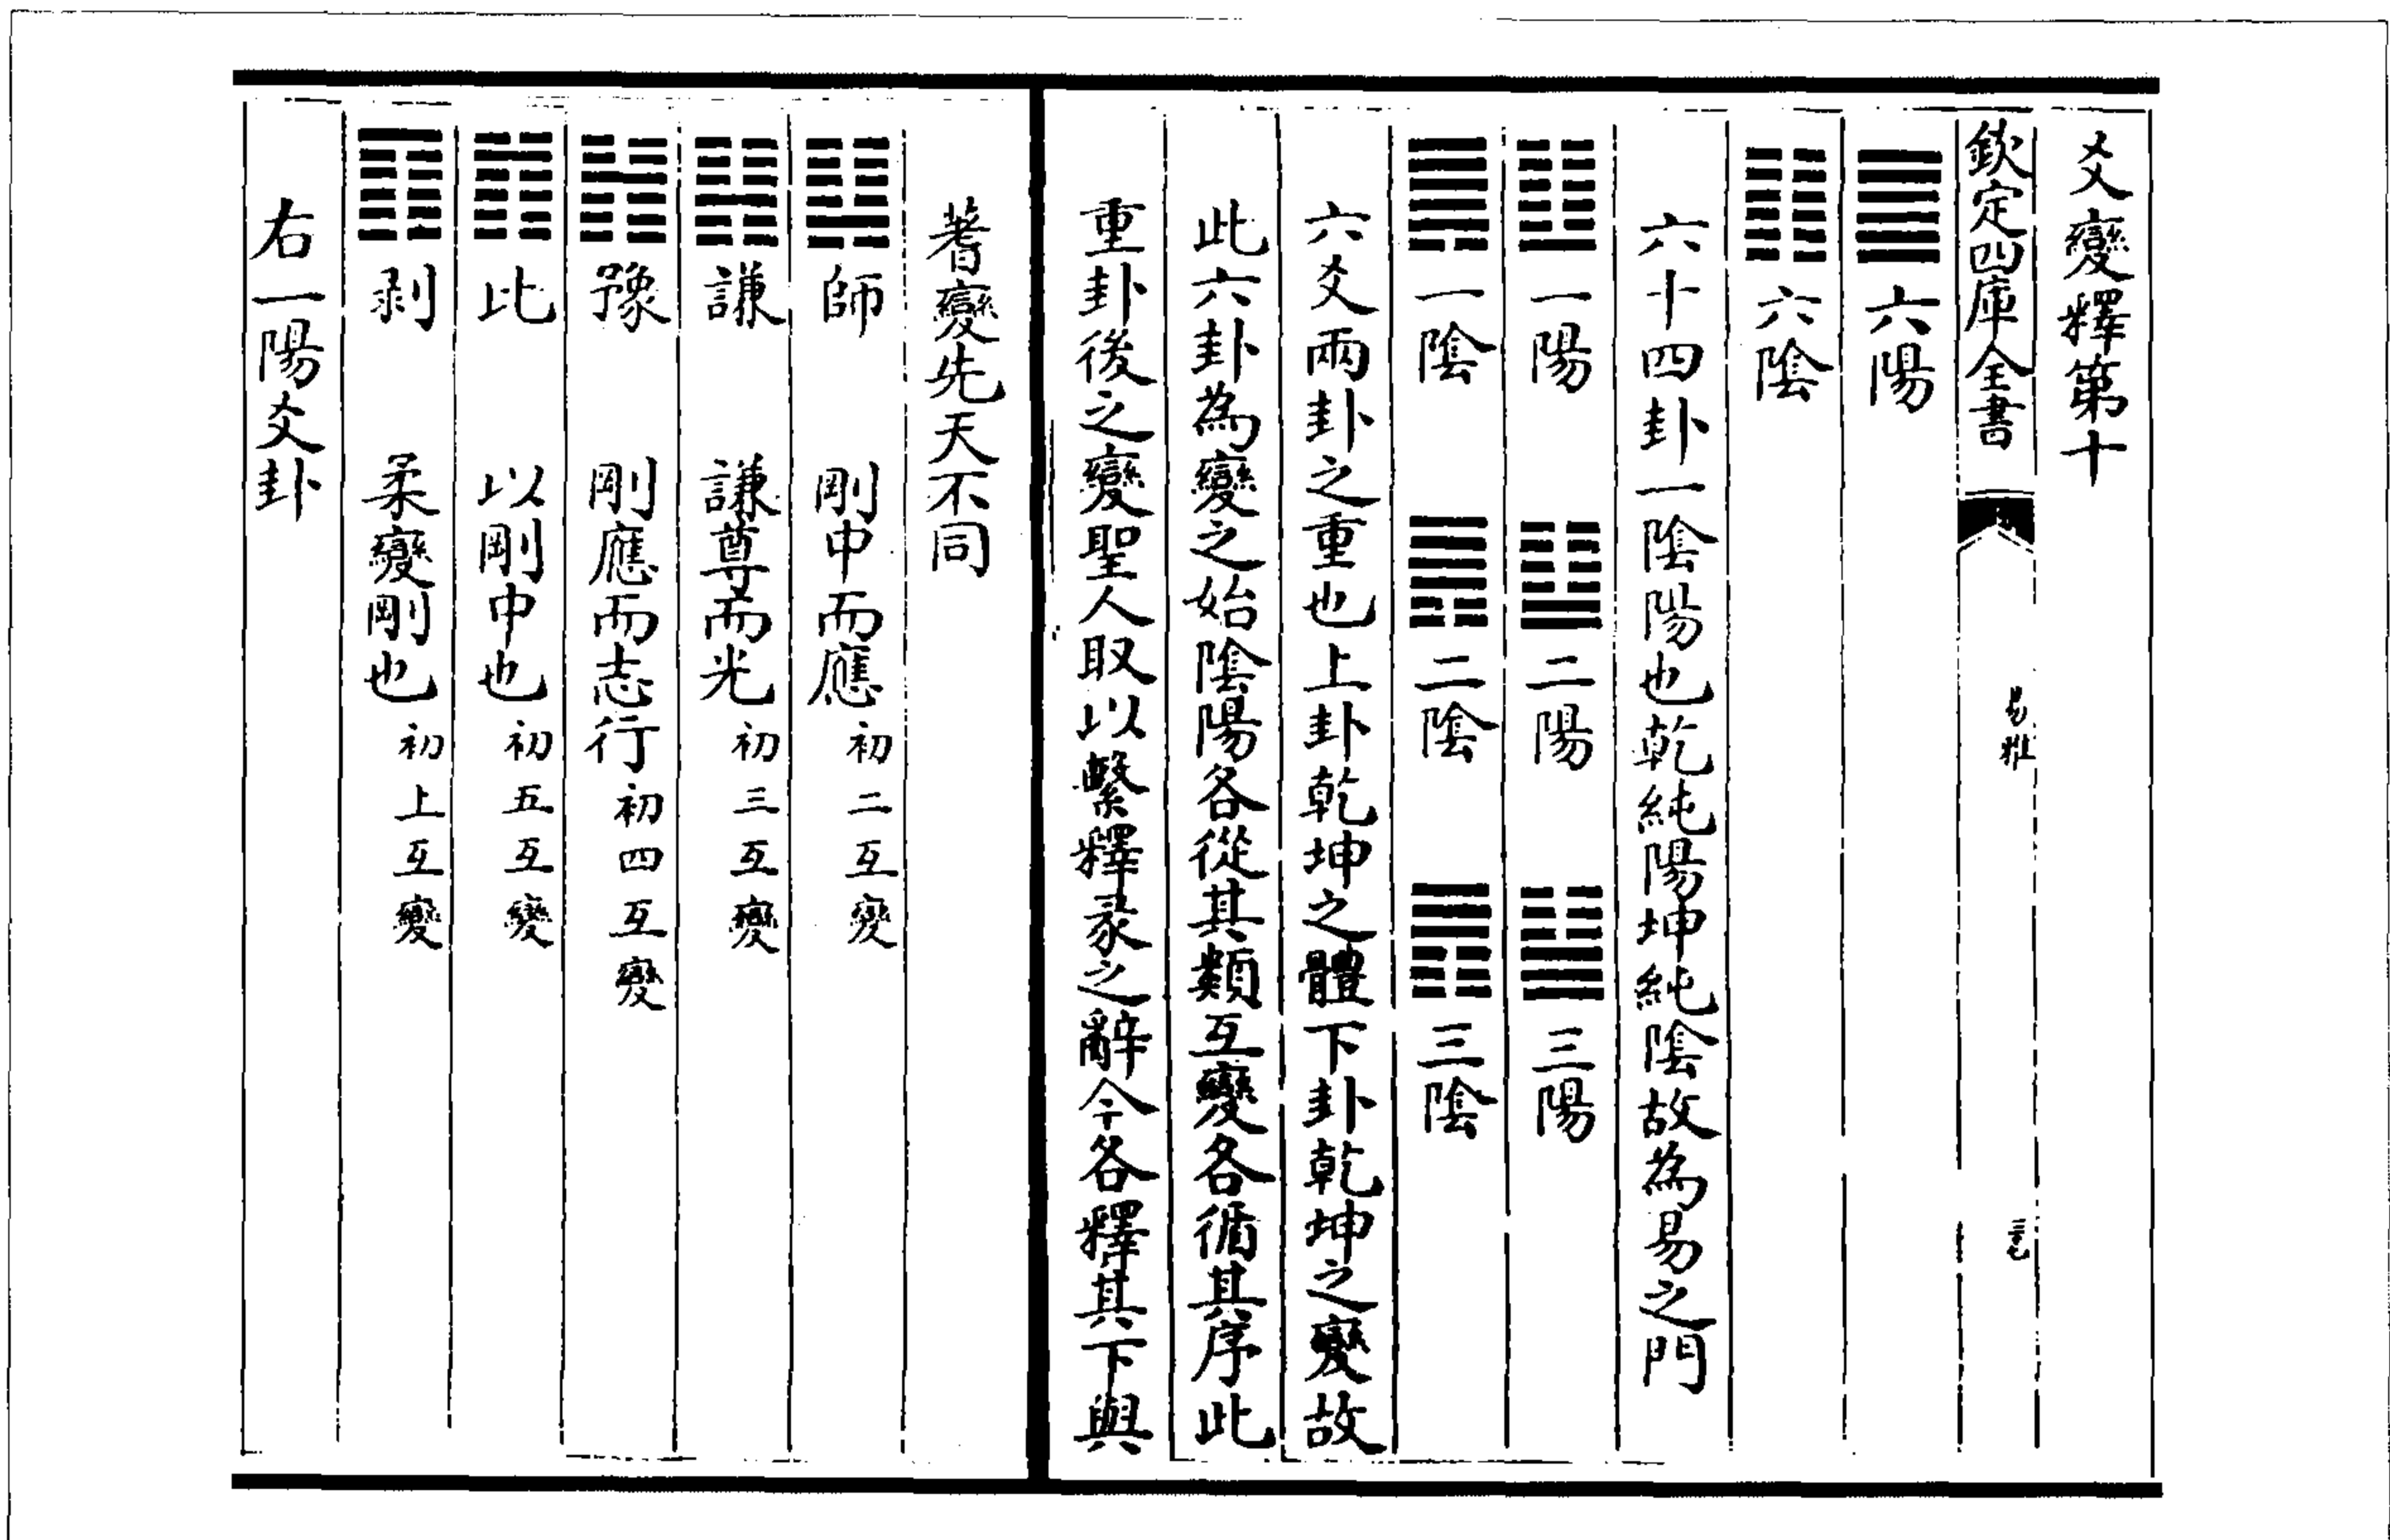 爻變釋第十
欽定四庫全書 易雅
六陽
六隂
六十四卦一隂陽也乾純陽坤純隂故為易之門
一陽 二陽 三陽
一隂 二隂 三隂
六爻兩卦之重也上卦乾坤之體下卦乾坤之變故
此六卦為變之始隂陽各從其類互變各循其序此
重卦後之變聖人取以繫釋彖之辭今各釋其下與
蓍變先天不同
師 剛中而應 初二互變
謙 謙尊而光 初三互變
豫 剛應而志行 初四互變
比 以剛中也 初五互變
剥 柔變剛也 初上互變
右一陽爻卦